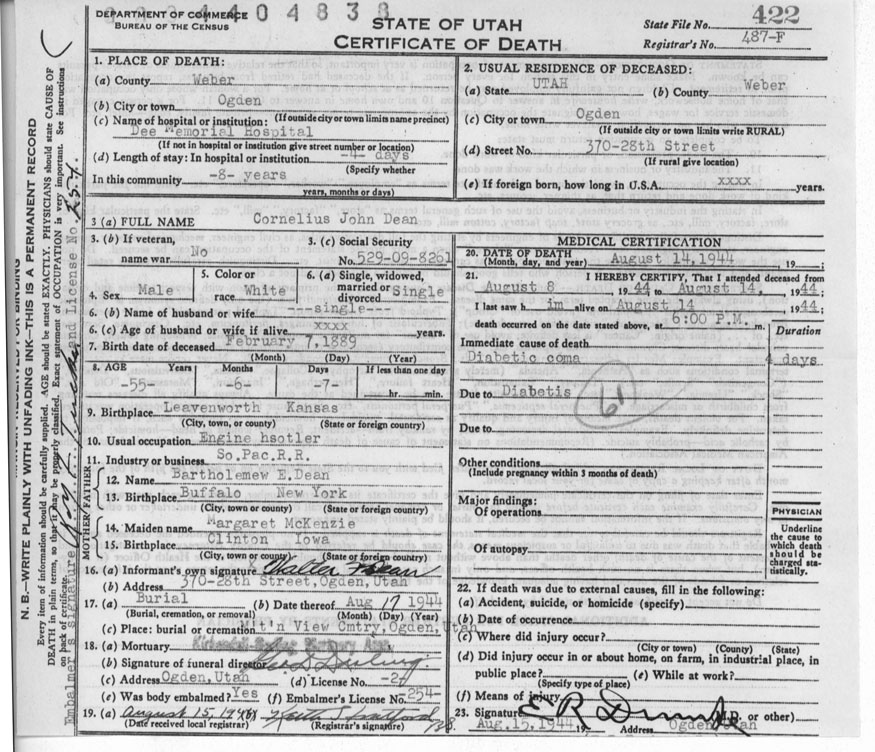 DEPARTMENT OF COMMERCE
BUREAU OF THE CENSUS
404838
STATE OF UTAH
CERTIFICATE OF DEATH
State File No. 422
Registrar's No. 487-F
1. PLACE OF DEATH:
(a) County Weber
(b) City or town Ogden
(c) Name of hospital or institution: (If outside city or town limits name precinct)
Dee Memorial Hospital
(If not in hospital or institution give street number or location)
(d) Length of stay: In hospital or institution -4- days
(Specify whether
In this community -8- years
years, months or days)
2. USUAL RESIDENCE OF DECEASED:
(a) State UTAH (b) County Weber
(c) City or town Ogden
(If outside city or town limits write RURAL)
(d) Street No. 370-28th Street
(If rural give location)
(e) If foreign born, how long in U.S.A. xxxx years.
3 (a) FULL NAME Cornelius John Dean
3. (b) If veteran, name war No
3. (c) Social Security No. 529-09-8261
4. Sex Male
5. Color or race White
6. (a) Single, widowed, married or divorced Single
6. (b) Name of husband or wife ---single---
6. (c) Age of husband or wife if alive xxxx years.
7. Birth date of deceased February 7, 1889
(Month) (Day) (Year)
8. AGE Years Months Days If less than one day
-55- -6- -7- hr. min.
9. Birthplace Leavenworth Kansas
(City, town, or county) (State or foreign country)
10. Usual occupation Engine hsotler
11. Industry or business So.Pac.R.R.
FATHER
12. Name Bartholemew E.Dean
13. Birthplace Buffalo New York
(City, town or county) (State or foreign country)
MOTHER
14. Maiden name Margaret McKenzie
15. Birthplace Clinton Iowa
(City, town or county) (State or foreign country)
16. (a) Informant's own signature Walter Dean
(b) Address 370-28th Street, Ogden, Utah
17. (a) Burial (b) Date thereof Aug 17 1944
(Burial, cremation, or removal) (Month) (Day) (Year)
(c) Place: burial or cremation Mt'n View Cmtry, Ogden, Utah
18. (a) Mortuary
(b) Signature of funeral director
(c) Address Ogden, Utah (d) License No. -2-
(e) Was body embalmed? Yes (f) Embalmer's License No. -254-
19. (a) August 15, 1944
(Date received local registrar) (Registrar's signature)
MEDICAL CERTIFICATION
20. DATE OF DEATH August 14, 1944 19
(Month, day, and year)
21. I HEREBY CERTIFY, That I attended deceased from
August 8 19 44 to August 14, 19 44;
I last saw h im alive on August 14 19 44;
death occurred on the date stated above, at 6:00 P.M. m.
Duration
Immediate cause of death
Diabetic coma 4 days
Due to Diabetis
61
Due to
Other conditions
(Include pregnancy within 3 months of death)
Major findings:
Of operations
Of autopsy
PHYSICIAN
Underline the cause to which death should be charged statistically.
22. If death was due to external causes, fill in the following:
(a) Accident, suicide, or homicide (specify)
(b) Date of occurrence
(c) Where did injury occur?
(City or town) (County) (State)
(d) Did injury occur in or about home, on farm, in industrial place, in
public place? (e) While at work?
(Specify type of place)
(f) Means of injury
23. Signature E R (M.D. or other)
Aug. 15, 1944 19 Address Ogden Utah
N. B.—WRITE PLAINLY WITH UNFADING INK—THIS IS A PERMANENT RECORD
Every item of information should be carefully supplied. AGE should be stated EXACTLY. PHYSICIANS should state CAUSE OF
DEATH in plain terms, so that it may be properly classified. Exact statement of OCCUPATION is very important. See instructions
on back of certificate.
Embalmer's signature and License No. 254